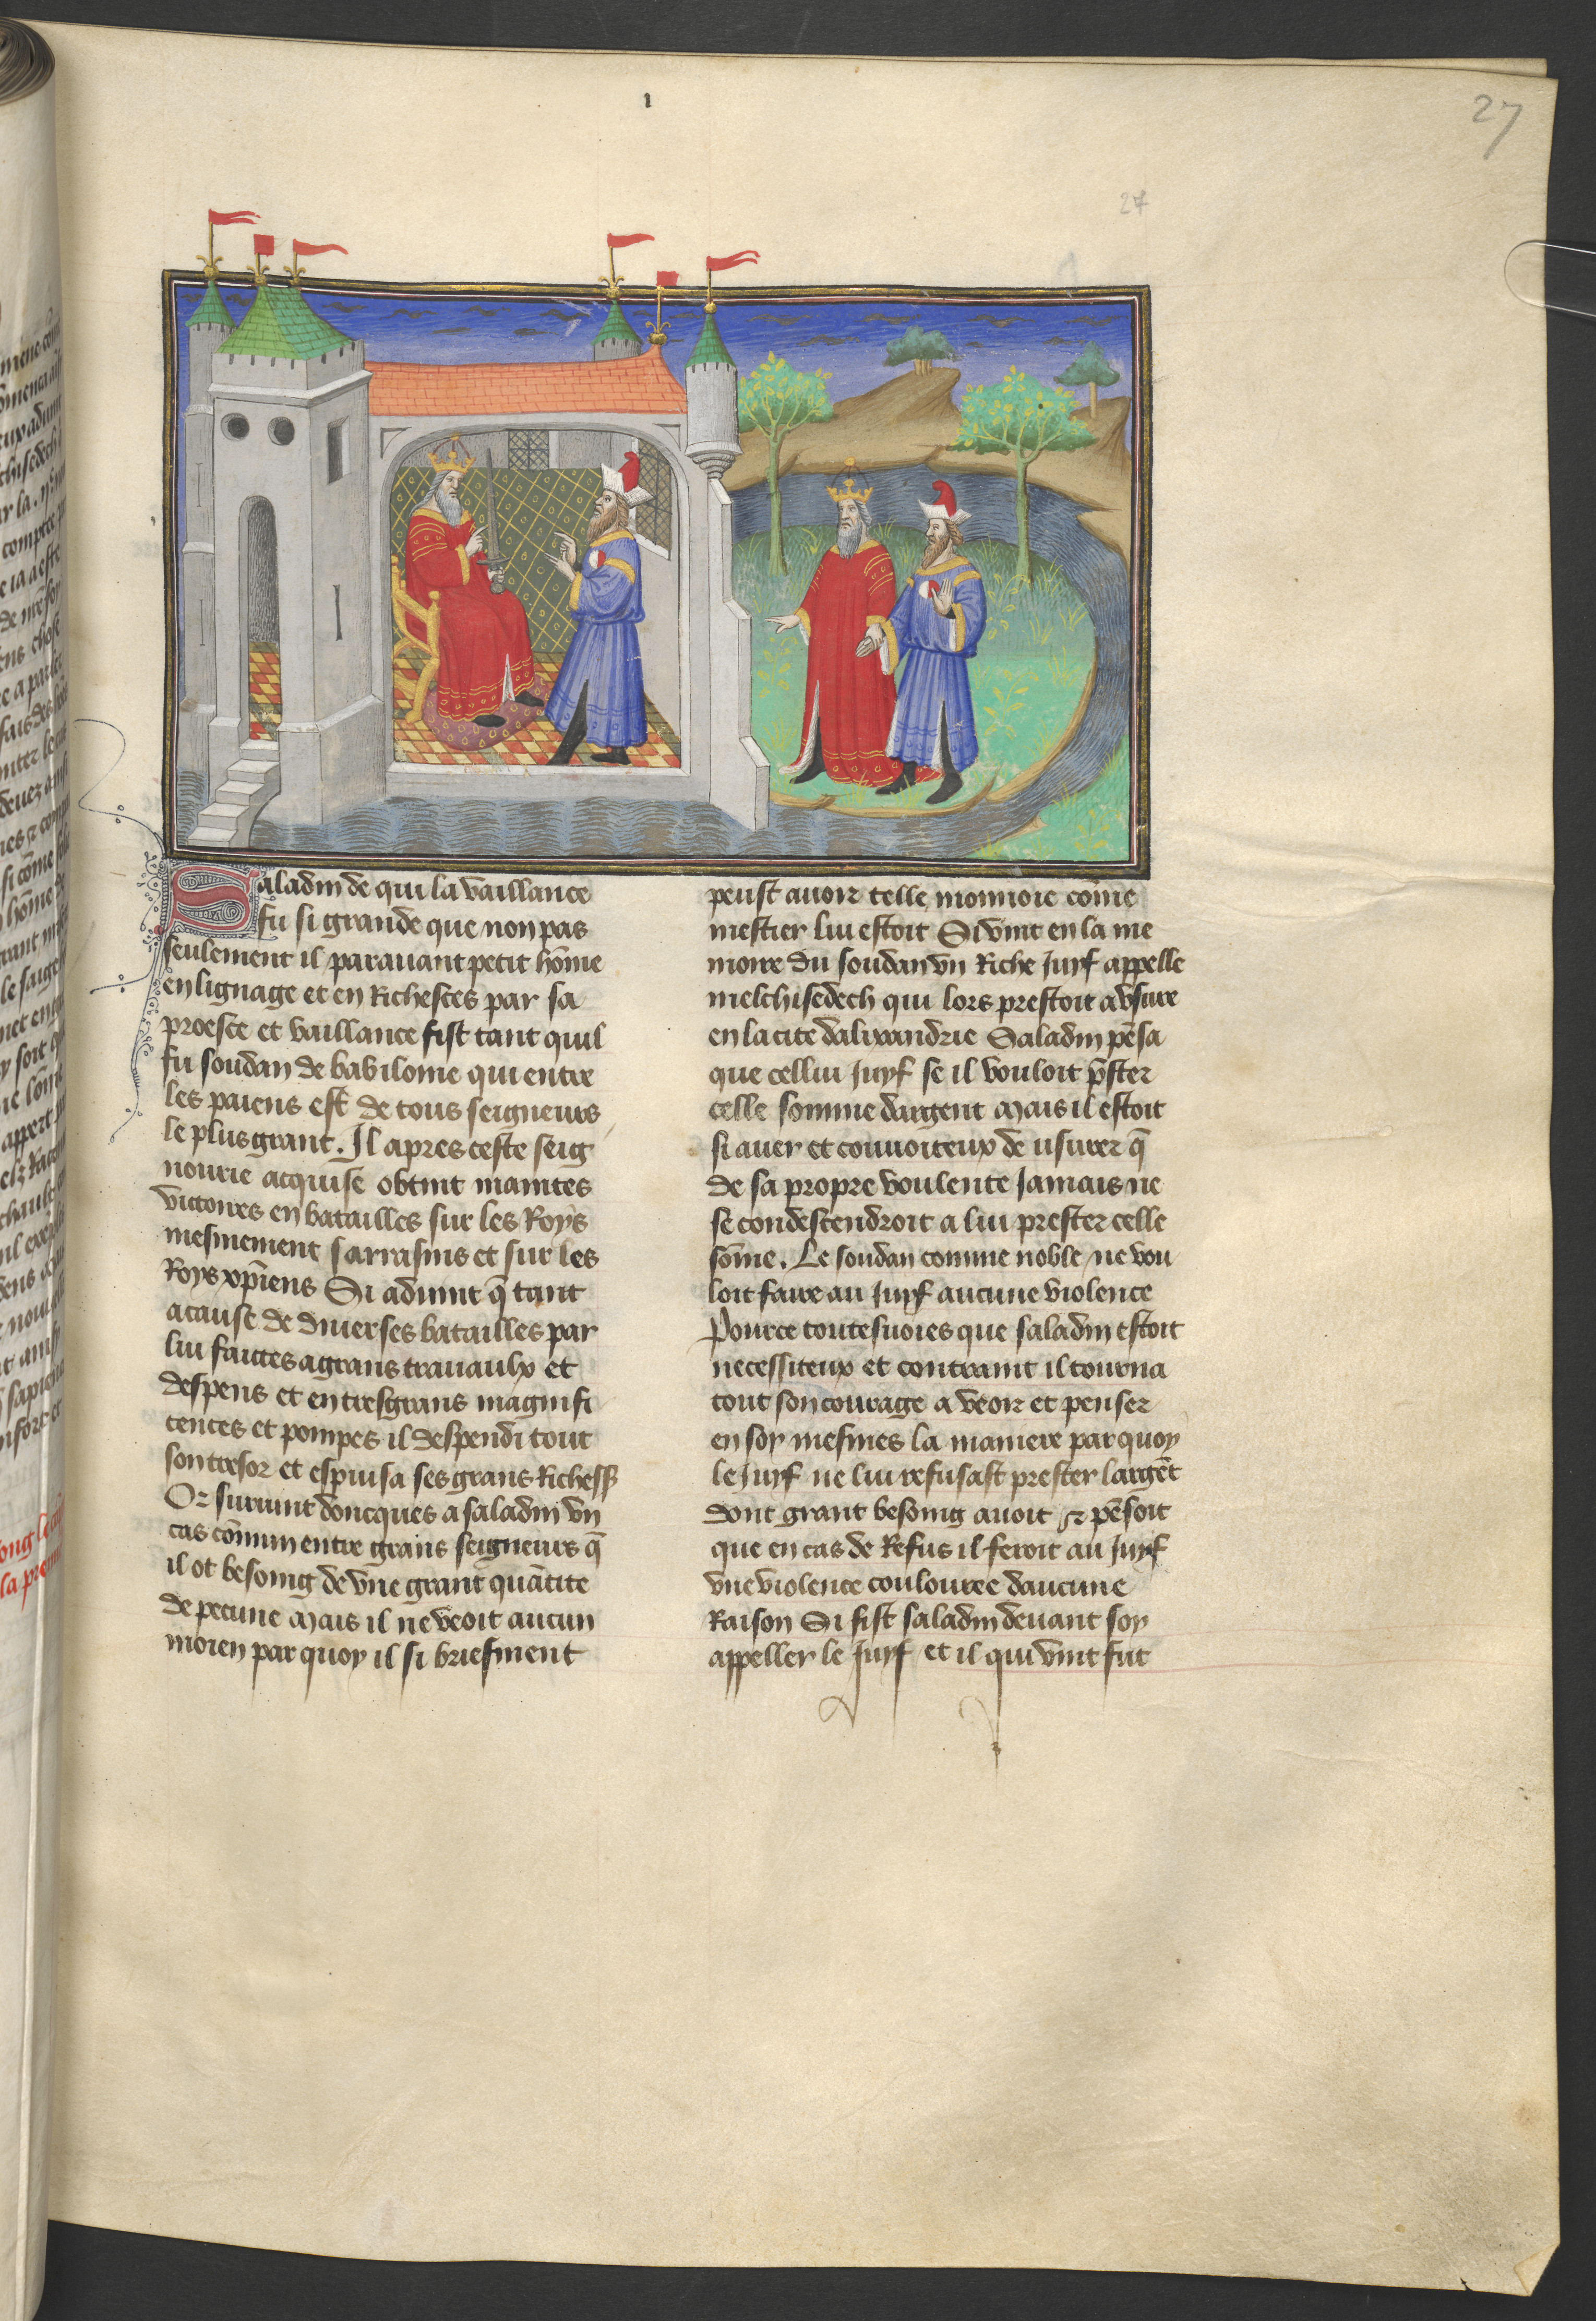 27
27
Saladin de qui la vaillance
fu si grande que non pas
seulement il parauant petit hōme
en lignage et en Richesces par sa
proesce et vaillance fist tant quil
fu soudan de babiloine qui entre
les paiens est de tous seigneurs
le plus grant. Il apres ceste seig
nourie acquise obtint maintes
victoires en batailles sur les Roys
mesmement sarrasins et sur les
Roys xp̄iens Si aduint q̄ tant
acause de diuerses batailles par
lui faictes a grans trauaulx et
despens et en tresgrans magnifi
cences et pompes il despendi tout
son tresor et espuisa ses grans Richess
Or suruint doncques a saladin vn
cas cōmun entre grans seigneurs q̄
il ot besoing de vne grant quātite
de pecune Mais il ne veoit aucun
moien par quoy il si briefment
peust auoir telle monnoie cōme
mestier lui estoit Si vint en la me
moire du soudan vn Riche Juyf appelle
melchisedech qui lors prestoit a vsure
en la cite dalixandrie Saladin pēsa
que cellui Juyf se il vouloit p̄ster
celle somme dargent Mais il estoit
si auer et conuoiteux de usurer q̄
de sa propre voulente Jamais ne
se condescendroit a lui prester celle
sōme. Le soudan comme noble ne vou
loit faire au Juyf aucune violence
Pource toutesuoies que saladin estoit
necessiteux et contraint il tourna
tout son courage a veoir et penser
en soy mesmes la maniere par quoy
le Juyf ne lui refusast prester largēt
dont grant besoing auoit et pēsoit
que en cas de Refus il feroit au Juyf
vne violence coulouree daucune
Raison Si fist saladin deuant soy
appeller le Juyf et il qui vint fut